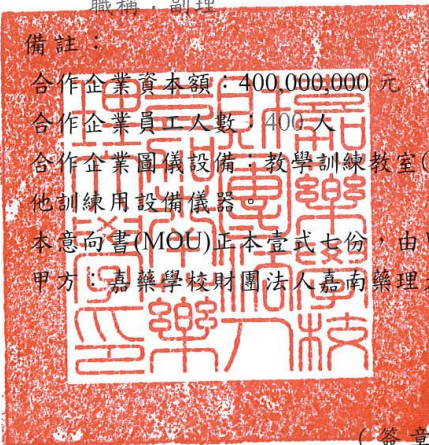 職稱：副理
備註：
合作企業資本額：400,000,000 元
合作企業員工人數：400 人
合作企業圖儀設備：教學訓練教室(
他訓練用設備儀器。
本意向書(MOU)正本壹式七份，由
甲方：嘉藥學校財團法人嘉南藥理
(簽章
嘉藥學校
財團法人
嘉南藥
理大學印